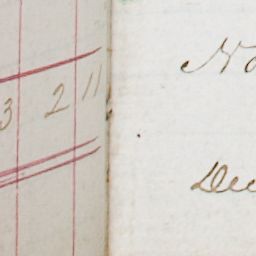 3 2 11
No
Dec